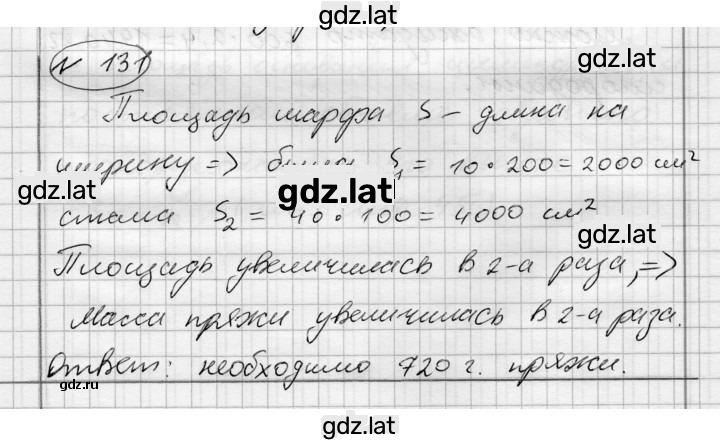 gdz.lat
N 131
gdz.lat
Площадь шарфа S – длина на
ширину => была S₁ = 10 · 200 = 2000 см²
gdz.lat
gdz.lat
стала S₂ = 40 · 100 = 4000 см²
gdz.lat
Площадь увеличилась в 2-а раза, =>
Масса пряжи увеличилась в 2-а раза.
Ответ: необходимо 720 г. пряжи.
gdz.ru
gdz.lat